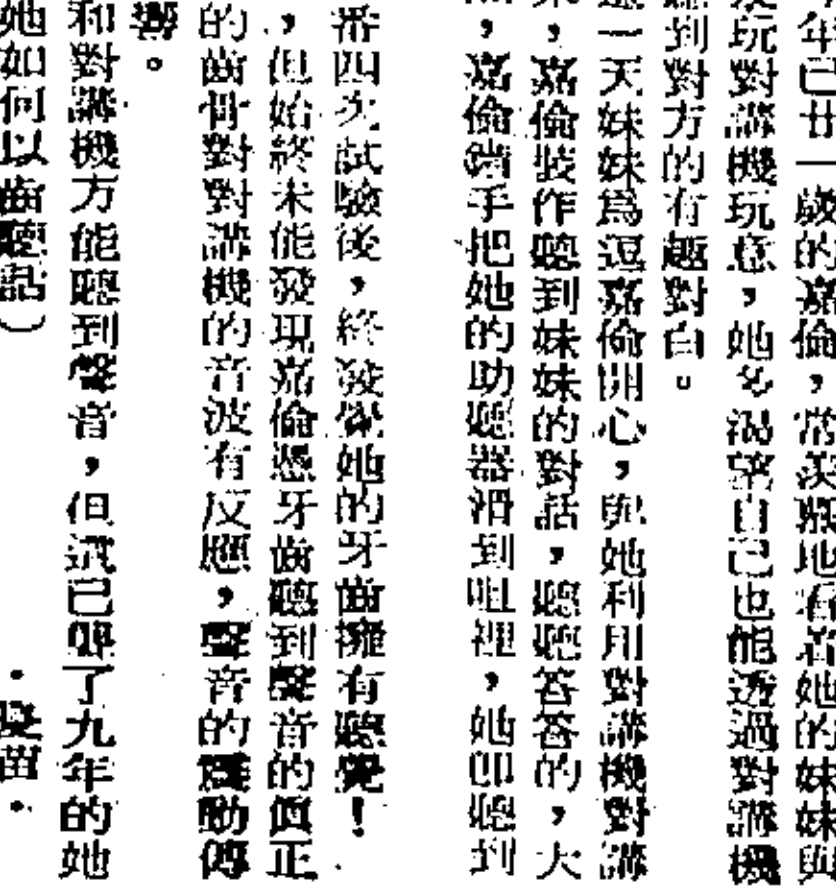 年已廿一歲的嘉倫，常羨慕地看着她的妹妹與
玩對講機玩意，她多渴望自己也能透過對講機
聽到對方的有趣對白。
一天妹妹為逗嘉倫開心，與她利用對講機對講
，嘉倫裝作聽到妹妹的對話，聽聽答答的，大
，嘉倫滑手把她的助聽器滑到咀裡，她即聽到
番四次試驗後，終發覺她的牙齒擁有聽覺！
，但始終未能發現嘉倫憑牙齒聽到聲音的真正
的齒骨對對講機的音波有反應，聲音的震動傳
響。
和對講機方能聽到聲音，但這已聾了九年的她
她如何以齒聽話）